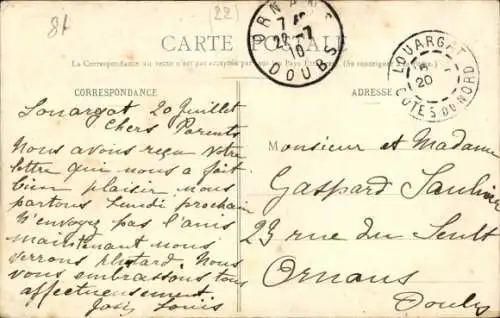 81
(22)
ORNANS
7
22 -7
10
DOUBS
LOUARGAT
20
COTES DU NORD
CARTE POSTALE
La Correspondance au verso n'est pas acceptée par tous les Pays
CORRESPONDANCE
ADRESSE
Louargat 20 Juillet
Chers Parents
Nous avons reçu votre
lettre qui nous a fait
bien plaisir nous
partons Lundi prochain
N'envoyez pas l'anis
maintenant nous
verrons plutard. Nous
vous embrassons tous
affectueusement.
Louis
Monsieur et Madame
Gaspard
23 rue du
Ornans
Doubs